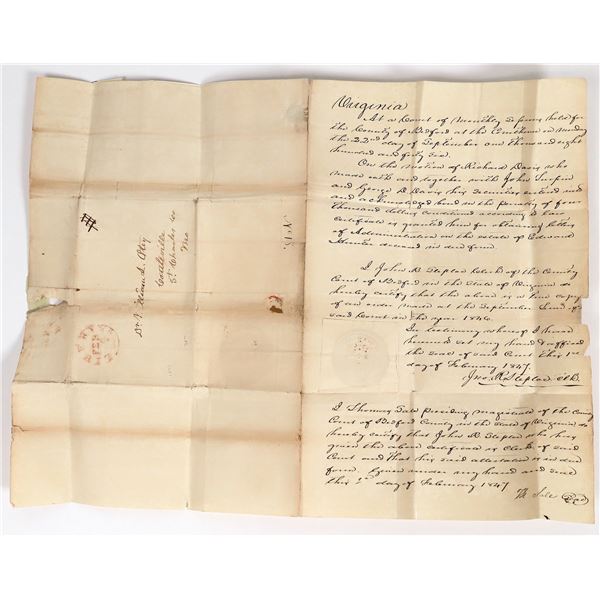 Virginia
At a Court of Monthly Session held for
the County of Bedford at the Courthouse on Monday
the 22nd day of September one thousand eight
hundred and forty six.
On the motion of Richard Davis who
made oath and together with John Turpin
and George D. Davis his securities entered into
and acknowledged bond in the penalty of four
thousand dollars conditioned according to law
Certificate is granted him for obtaining letters
of Administration on the estate of Edward
deceased in due form.
I John R Steptoe Clerk of the County
Court of Bedford in the State of Virginia do
hereby certify that the above is a true copy
of an order made at the September Court of
said Court in the year 1846.
In testimony whereof I have
hereunto set my hand & affixed
the seal of said Court this 1st
day of February 1847.
Jno. R. Steptoe Clk.
I Thomas Sale presiding magistrate of the County
Court of Bedford County in the State of Virginia do
hereby certify that John R Steptoe who has
given the above certificate is Clerk of said
Court and that his said attestation is in due
form. Given under my hand and seal
this 1st day of February 1847
Th. Sale Seal
Dr.
Cottleville
St Charles Co
Mo
FEB